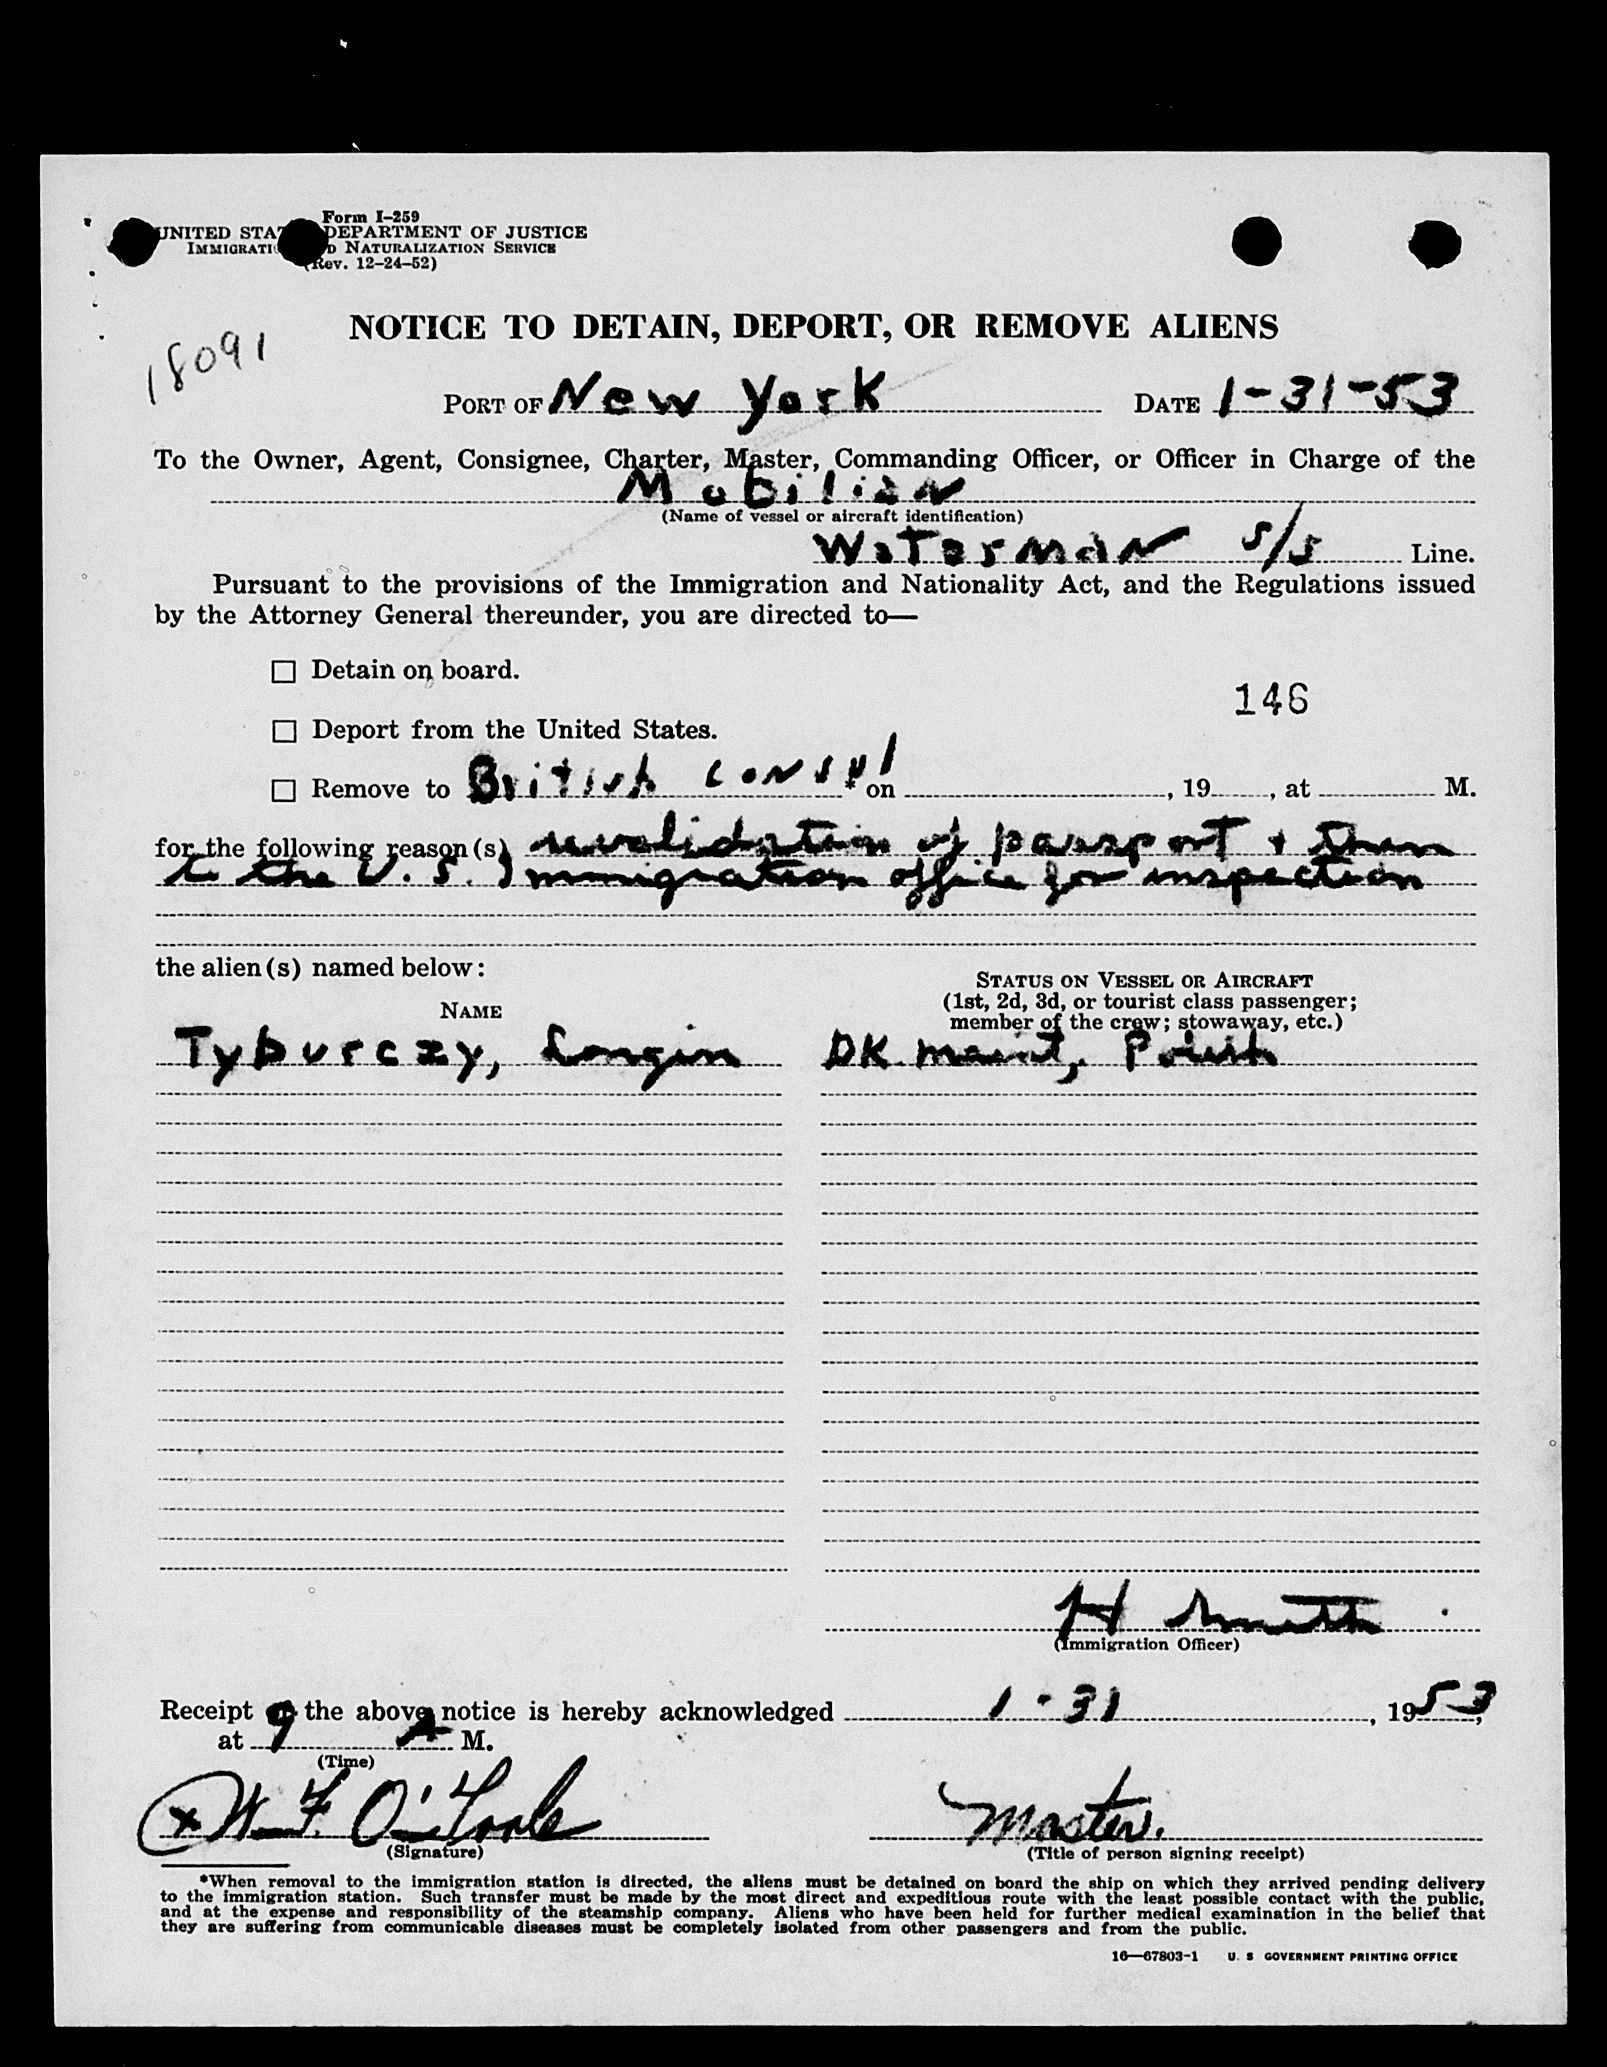 Form I-259
UNITED STA DEPARTMENT OF JUSTICE
IMMIGRATI D NATURALIZATION SERVICE
(Rev. 12-24-52)
NOTICE TO DETAIN, DEPORT, OR REMOVE ALIENS
18091
PORT OF New York DATE 1-31-53
To the Owner, Agent, Consignee, Charter, Master, Commanding Officer, or Officer in Charge of the
Mobilian
(Name of vessel or aircraft identification)
Waterman S/S Line.
Pursuant to the provisions of the Immigration and Nationality Act, and the Regulations issued
by the Attorney General thereunder, you are directed to—
☐ Detain on board.
146
☐ Deport from the United States.
☐ Remove to British Consul * on , 19 , at M.
for the following reason(s) revalidation of passport + then
to the U.S. Immigration office for inspection
the alien(s) named below:
STATUS ON VESSEL OR AIRCRAFT
NAME (1st, 2d, 3d, or tourist class passenger;
member of the crew; stowaway, etc.)
Tyburczy, Longin DK maint, Polish
H Smith
(Immigration Officer)
Receipt of the above notice is hereby acknowledged 1-31, 1953,
at 9 A M.
(Time)
x W. F. O'Toole Master.
(Signature) (Title of person signing receipt)
*When removal to the immigration station is directed, the aliens must be detained on board the ship on which they arrived pending delivery
to the immigration station. Such transfer must be made by the most direct and expeditious route with the least possible contact with the public,
and at the expense and responsibility of the steamship company. Aliens who have been held for further medical examination in the belief that
they are suffering from communicable diseases must be completely isolated from other passengers and from the public.
16—67803-1 U. S GOVERNMENT PRINTING OFFICE